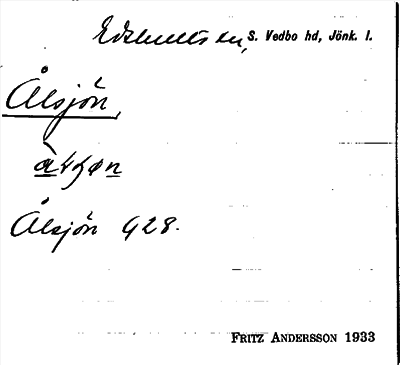 Edshults sn, S. Vedbo hd, Jönk. l.
Ålsjön,
Ålsjön G28.
FRITZ ANDERSSON 1933